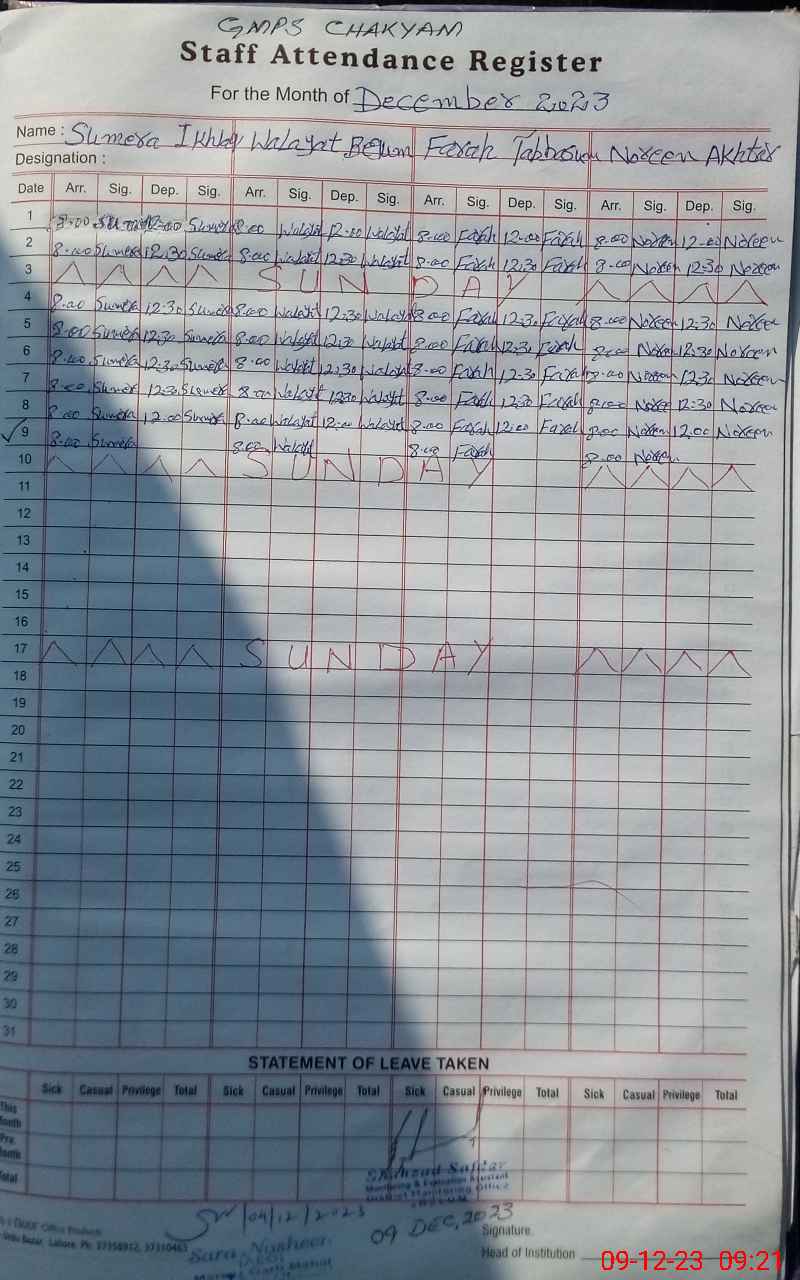 GMPS CHAKYAM
Staff Attendance Register
For the Month of December 2023
Name : Sumera Walayat Begum Farah Noreen Akhter
Designation :
Date Arr. Sig. Dep. Sig. Arr. Sig. Dep. Sig. Arr. Sig. Dep. Sig. Arr. Sig. Dep. Sig.
1 8.00 12.00 Sumera 8.00 Walayt 12.00 Walayt 8.00 Farah 12.00 Farah 8.00 Noreen 12.00 Noreen
2 8.00 Sumera 12.30 Sumera 8.00 Walayt 12.30 Walayt 8.00 Farah 12.30 Farah 8.00 Noreen 12.30 Noreen
3 SUNDAY
4 8.00 Sumera 12.30 Sumera 8.00 Walayt 12.30 Walayt 8.00 Farah 12.30 Farah 8.00 Noreen 12.30 Noreen
5 8.00 Sumera 12.30 Sumera 8.00 Walayt 12.30 Walayt 8.00 Farah 12.30 Farah 8.00 Noreen 12.30 Noreen
6 8.00 Sumera 12.30 Sumera 8.00 Walayt 12.30 Walayt 8.00 Farah 12.30 Farah 8.00 Noreen 12.30 Noreen
7 8.00 Sumera 12.30 Sumera 8.00 Walayt 12.30 Walayt 8.00 Farah 12.30 Farah 8.00 Noreen 12.30 Noreen
8 8.00 Sumera 12.00 Sumera 8.00 Walayt 12.00 Walayt 8.00 Farah 12.00 Farah 8.00 Noreen 12.00 Noreen
9 8.00 Sumera 8.00 Walayt 8.00 Farah 8.00 Noreen
10 SUNDAY
11
12
13
14
15
16
17 SUNDAY
18
19
20
21
22
23
24
25
26
27
28
29
30
31
STATEMENT OF LEAVE TAKEN
Sick Casual Privilege Total Sick Casual Privilege Total Sick Casual Privilege Total Sick Casual Privilege Total
This Month
Pre. Month
Total
Shahzad Safdar
Monitoring & Evaluation Assistant
District Monitoring Office
04/12/2023
09 DEC, 2023
Signature
Office Products
Bazar, Lahore. Ph:
Sara
Head of Institution
09-12-23 09:21